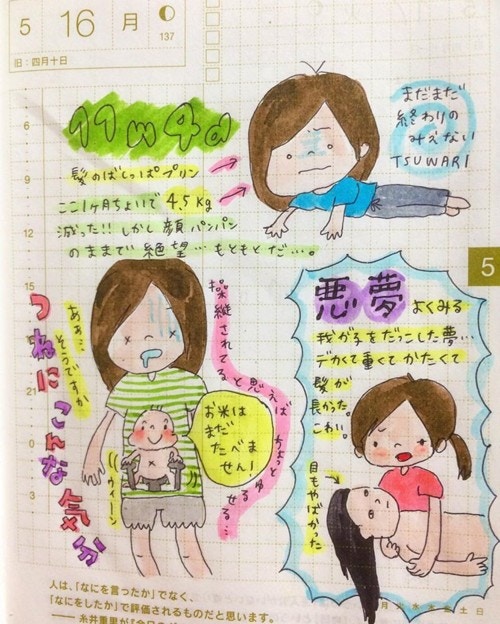 5 16 月
137
旧:四月十日
6
9
15
21
0
3
5
11w4d
髪のばしっぱプリン
ここ1ヶ月ちょいで 4.5kg
減った!!しかし顔パンパン
のままで絶望…もともとだ…。
まだまだ
終わりの
みえない
TSUWARI
つねにこんな気分
あぁ…
そうですか
操縦されてると思えば
お米は
まだ
たべま
せん!
ウィーン
悪夢 よくみる
我が子をだっこした夢…
デカくて重くてかたくて
髪が
長かった。
こわい。
目もやばかった
人は、「なにを言ったか」でなく、
「なにをしたか」で評価されるものだと思います。
—— 糸井重里が『今日のダ
月火水木金土日